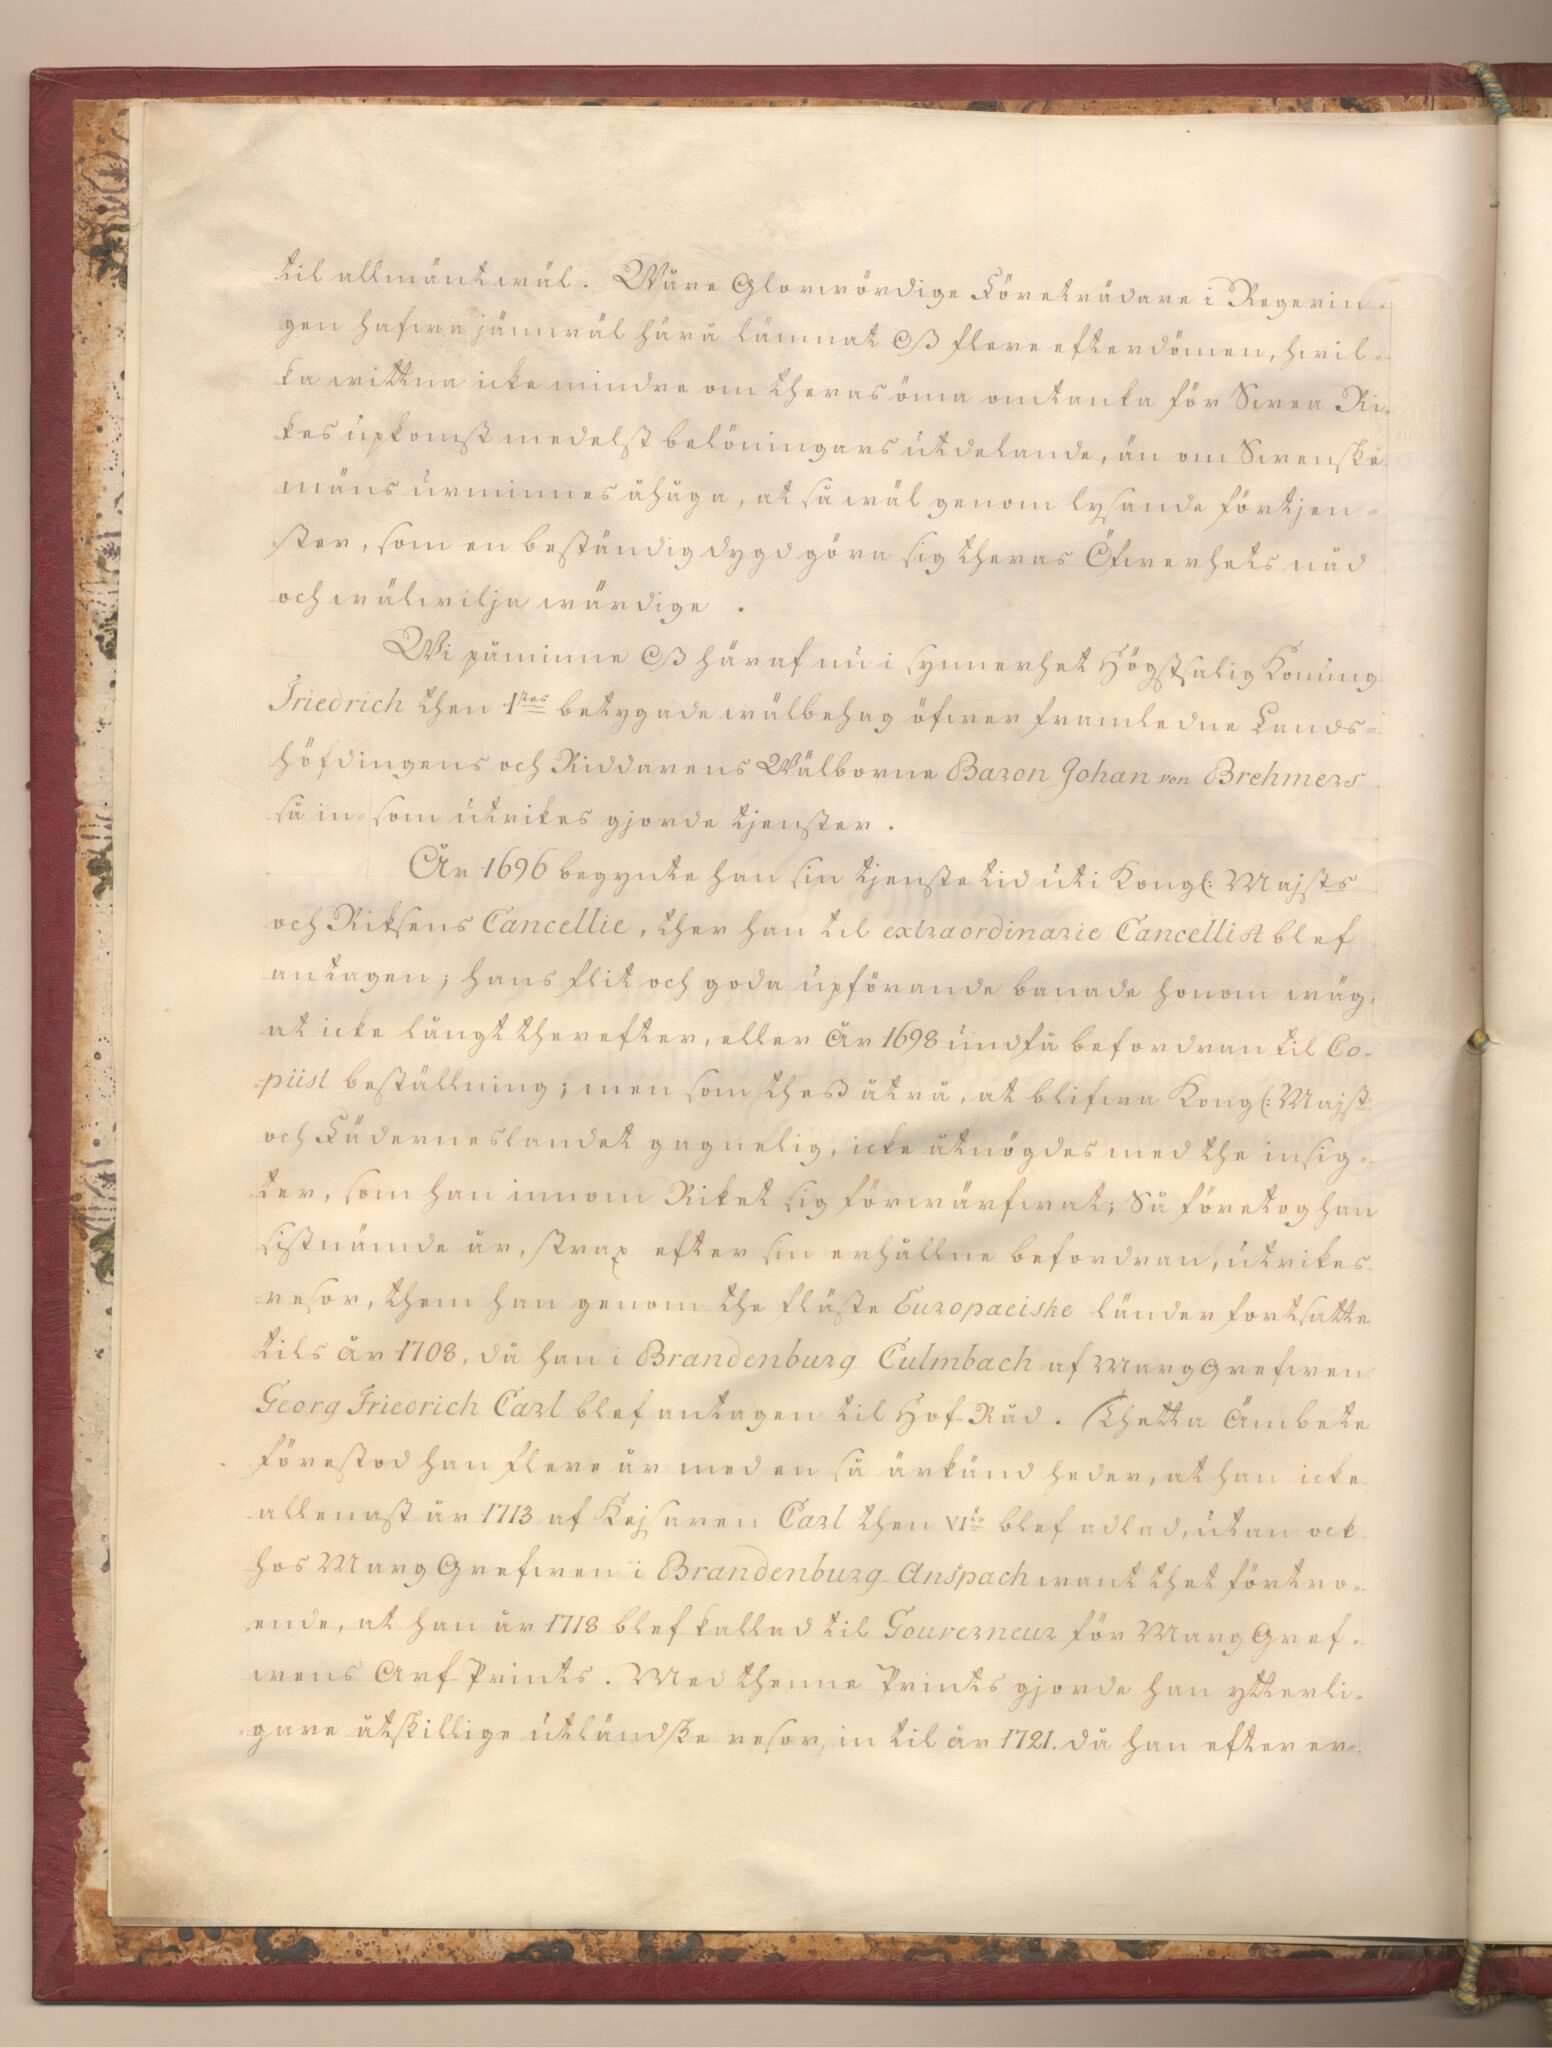 til allmänt wäl. Wåre Glorwördige Företrädare i Regerin-
gen hafwa jämwäl härå lämnat Oß flere efterdömen, hwil-
ka wittna icke mindre om theras öma omtanka för Swea Ri-
kes upkomst medelst belöningars utdelande, än om Swenske
mäns urminnes åhåga, at så wäl genom lysande förtjen-
ster, som en beständig dygd göra sig theras Öfwerhets nåd
och wälwilja wärdige.
Wi påminne Oß häraf nu i synnerhet Högstsalig Konung
Friedrich then 1stes betygade wälbehag öfwer framledne Lands-
höfdingens och Riddarens Wälborne Baron Johan von Brehmers
så in- som utrikes gjorde tjenster.
År 1696 begynte han sin tjenste tid uti Kongl: Majsts
och Riksens Cancellie, ther han til extraordinarie Cancellist blef
antagen; hans flit och goda upförande banade honom wäg,
at icke långt therefter, eller År 1698 undfå befordran til Co-
piist beställning; men som theß åtrå, at blifwa Kongl: Majst
och Fäderneslandet gagnelig, icke åtnögdes med the insig-
ter, som han innom Riket sig förwärfwat; Så företog han
sistnämde år, strax efter sin erhållne befordran, utrikes
resor, them han genom the fläste Europaeiske länder fortsatte
tils år 1708, då han i Brandenburg Culmbach af MargGrefwen
Georg Friedrich Carl blef antagen til Hof-Råd. Thetta Ämbete
förestod han flere år med en så ärkänd heder, at han icke
allenast år 1713 af Kejsaren Carl then VIte blef adlad, utan ock
hos MargGrefwen i Brandenburg-Anspach want thet förtro-
ende, at han år 1718 blef kallad til Gouverneur för MargGref-
wens Arf-Prints. Med thenne Prints gjorde han ytterli-
gare åtskillige utländske resor, in til år 1721. då han efter er-